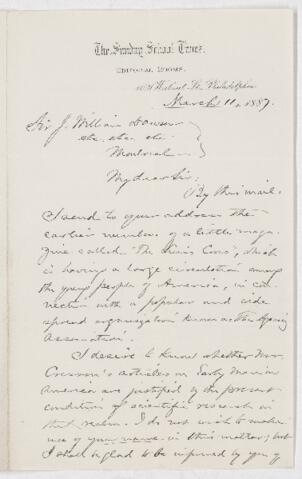 The Sunday School Times.
Editorial Rooms.
Walnut St. Philadelphia
March 11, 1887.
Sir J. William Dawson
etc. etc. etc.
Montreal
My dear Sir:
By this mail
I send to your address the
earlier numbers of a little maga-
zine called "The
is having a large circulation among
the young people of America, in con-
nection with a popular and wide
spread organization known as The Agassiz
Association.
I desire to know whether Mr.
articles on Early Man in
America are justified by the present
condition of scientific research in
that realm. I do not wish to make
use of your name in this matter; but
I shall be glad to be informed by you of